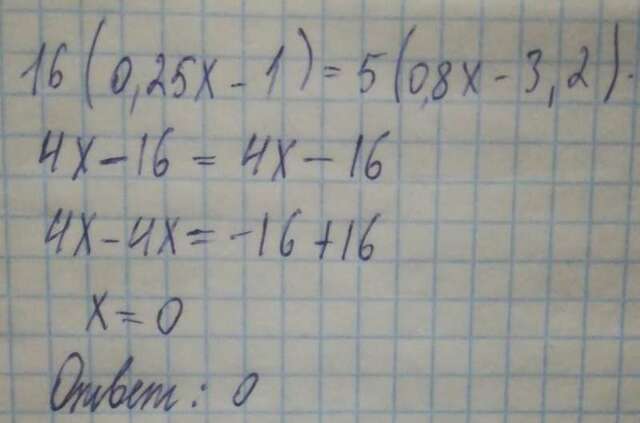 16(0,25x - 1) = 5(0,8x - 3,2).
4x - 16 = 4x - 16
4x - 4x = -16 + 16
x = 0
Ответ: 0